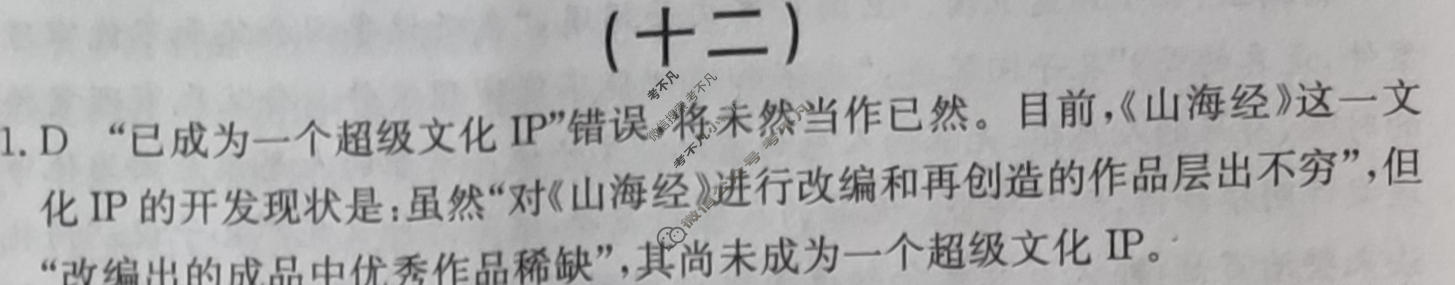 (十二)
1. D “已成为一个超级文化 IP”错误,将未然当作已然。目前,《山海经》这一文
化 IP 的开发现状是:虽然“对《山海经》进行改编和再创造的作品层出不穷”,但
“改编出的成品中优秀作品稀缺”,其尚未成为一个超级文化 IP。
考不凡